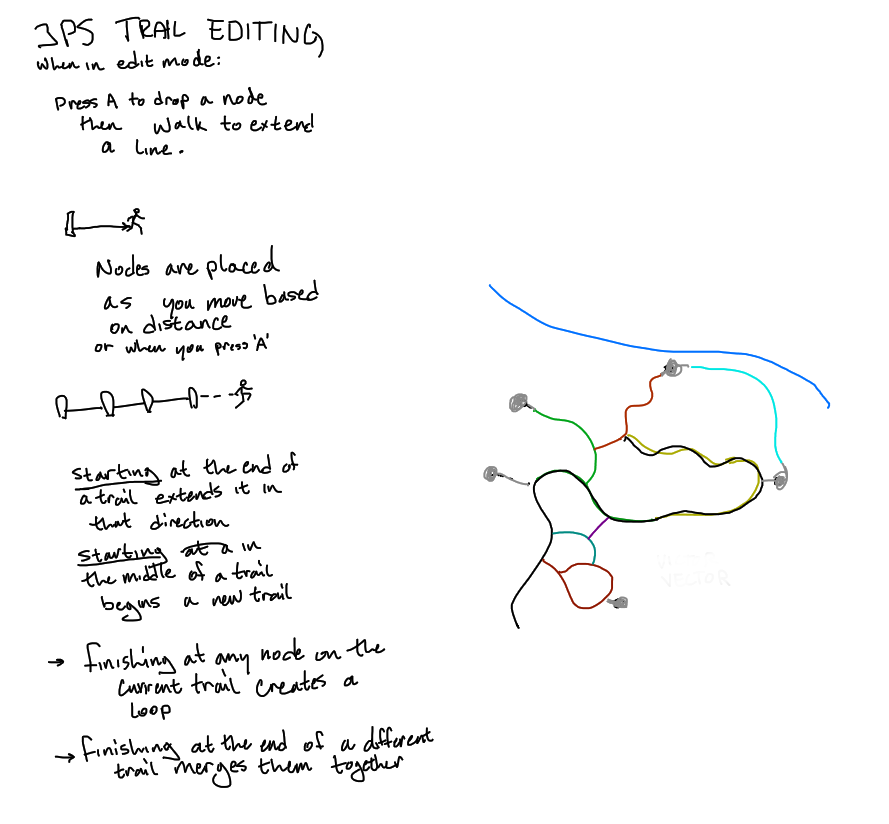 3PS TRAIL EDITING
When in edit mode:
Press A to drop a node
then walk to extend
a line.
Nodes are placed
as you move based
on distance
or when you press 'A'
starting at the end of
a trail extends it in
that direction
starting at a in
the middle of a trail
begins a new trail
→ finishing at any node on the
current trail creates a
loop
→ finishing at the end of a different
trail merges them together
VECTOR